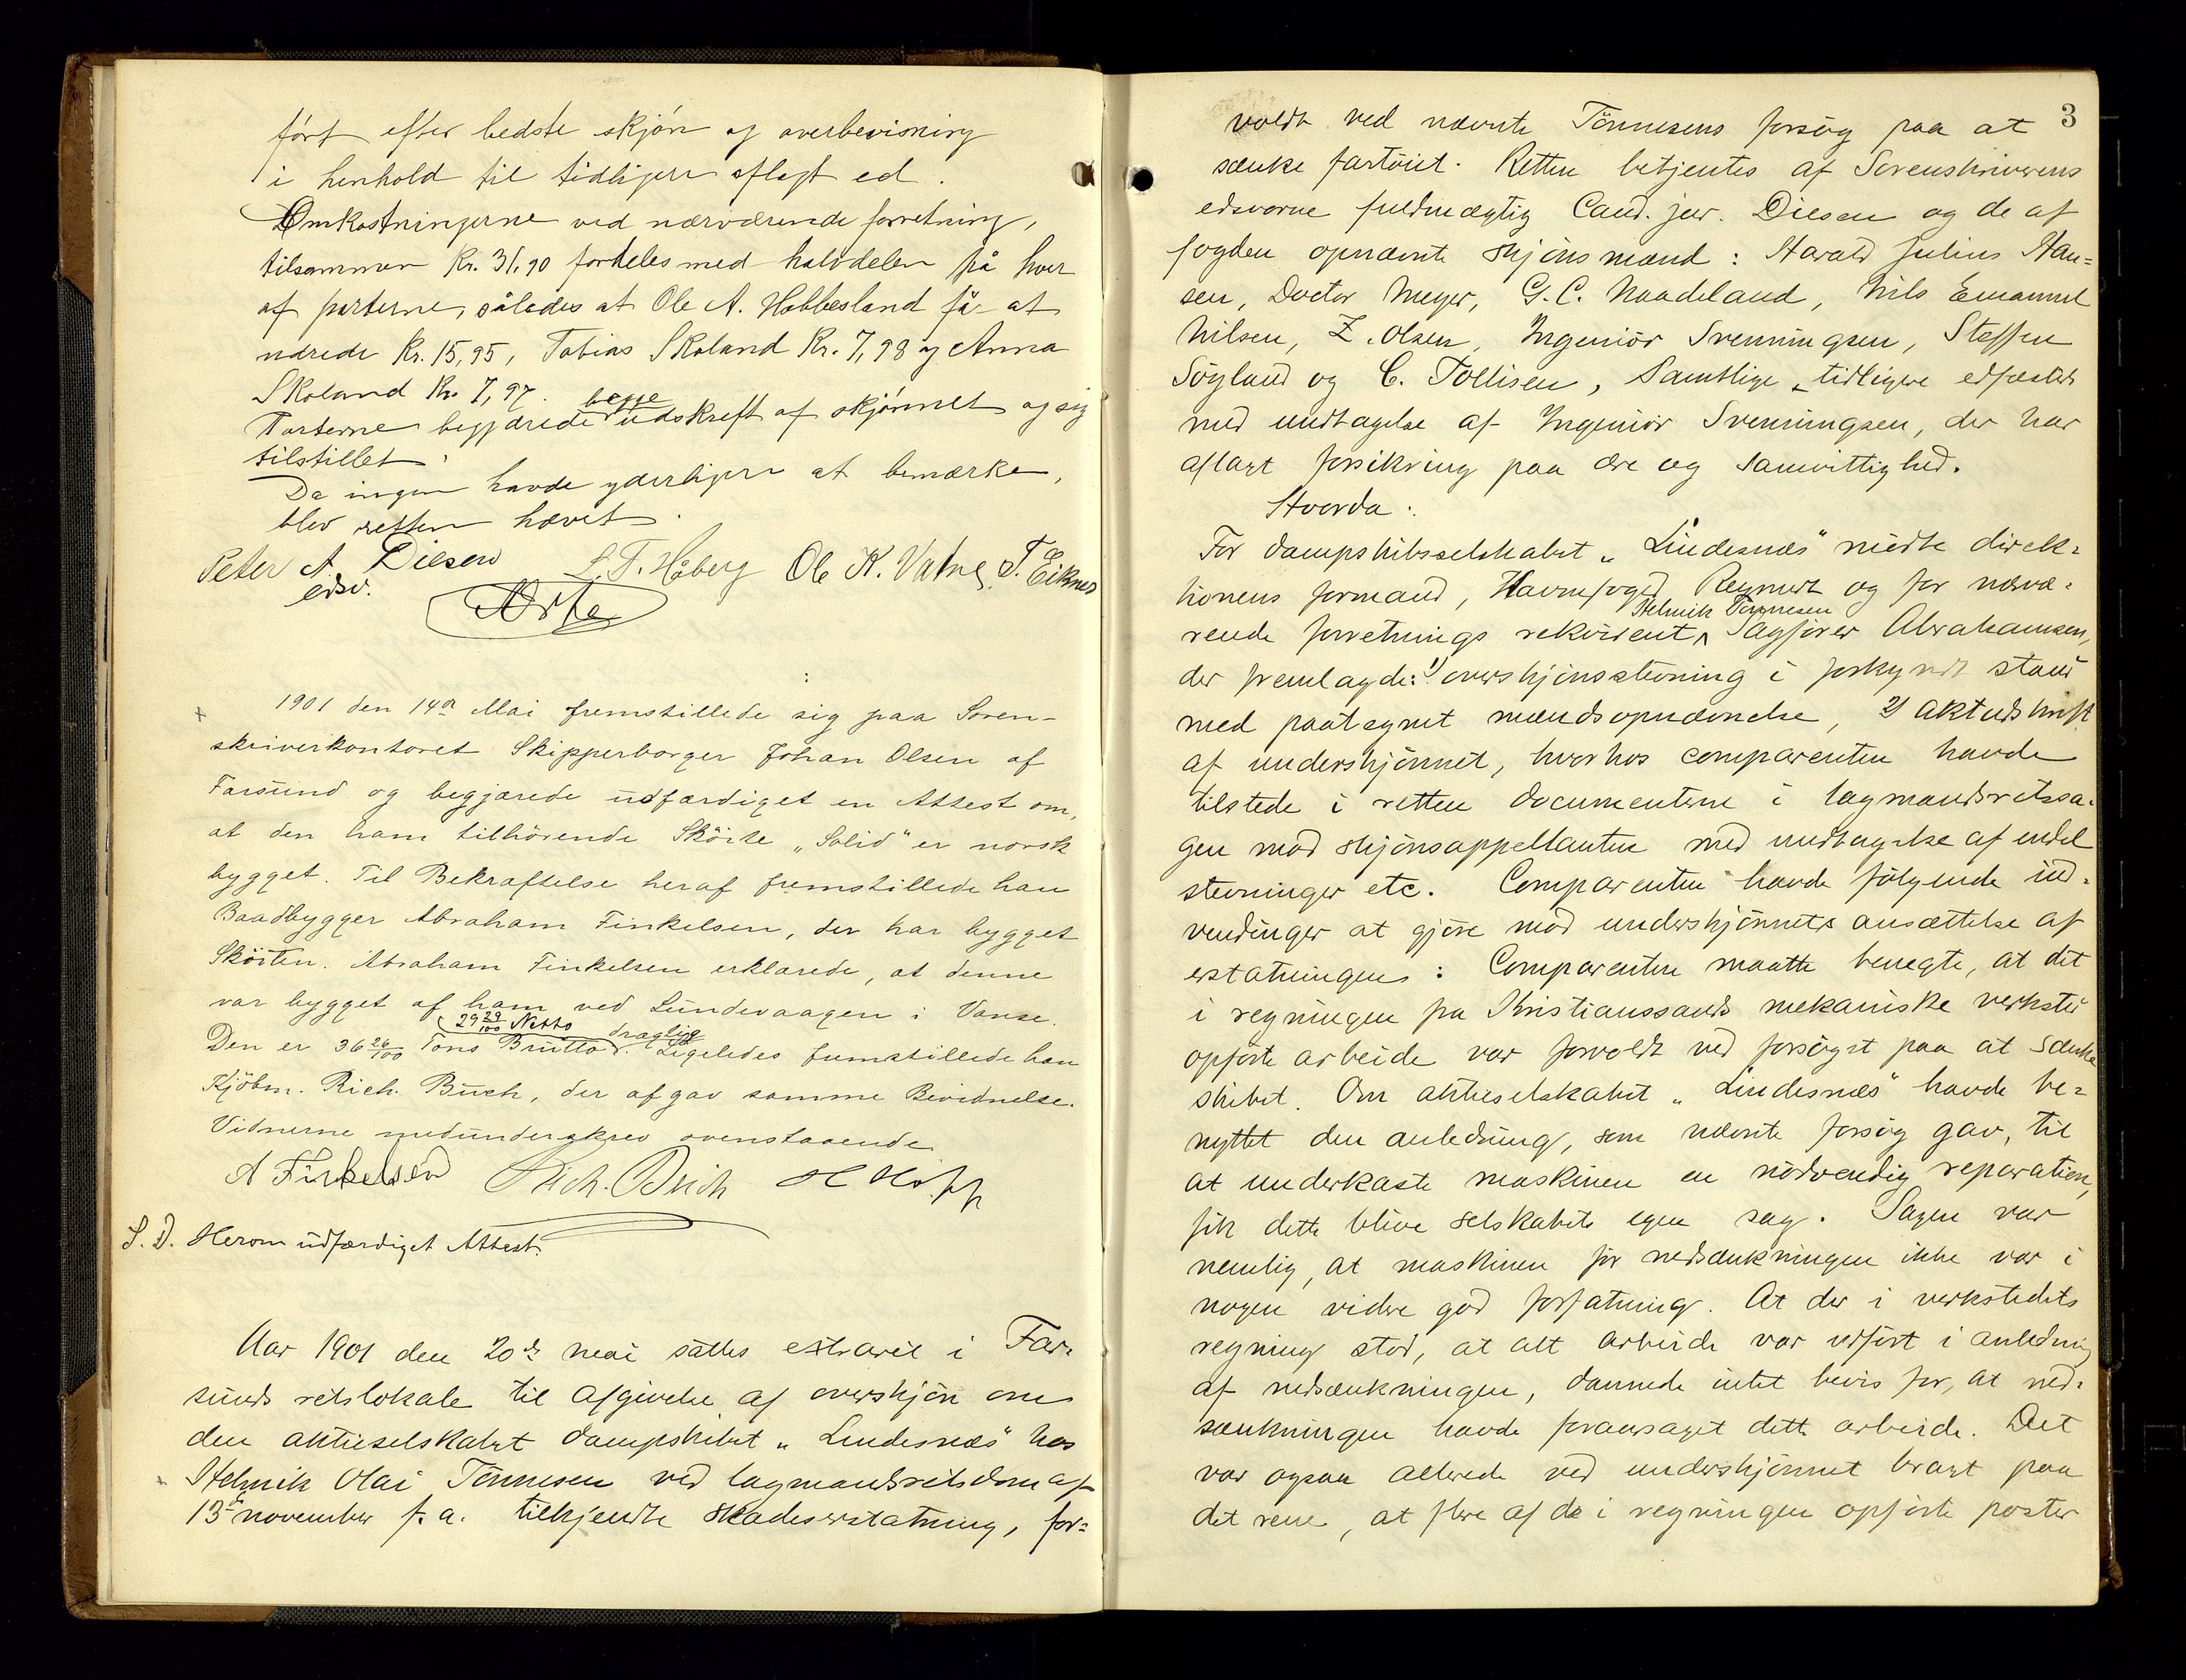 ført efter bedste skjøn og overbevisning
i henhold til tidligere aflagt ed.
Omkostningerne ved nærværende forretning,
tilsammen Kr. 31,90 fordeles med halvdelen på hver
af parterne, således at Ole A. Hobbesland får at
udrede Kr. 15,95, Tobias Skoland Kr. 7,98 og Anna
Skoland Kr. 7,97.
Parterne begjærede begge udskrift af skjønnet og sig
tilstillet.
Da ingen havde yderligere at bemærke,
blev retten hævet.
Peter A. Diesen L. T. Håberg Ole K. Vatne T. Eiknes
edsv.
1901 den 14de Mai fremstillede sig paa Soren-
skriverkontoret Skipperborger Johan Olsen af
Farsund og begjærede udfærdiget en Attest om,
at den ham tilhørende Skøite „Solid" er norsk
bygget. Til Bekræftelse heraf fremstillede han
Baadbygger Abraham Finkelsen, der har bygget
Skøiten. Abraham Finkelsen erklærede, at denne
var bygget af ham ved Lundevaagen i Vanse.
29 29/100 Netto dragtig
Den er 36 26/100 Tons Brutto. Ligeledes fremstillede han
Kjøbm. Rich. Buch, der afgav samme Bevidnelse.
Vidnerne medunderskrev ovenstaaende
A Finkelsen Rich. Buch
S. D. Herom udfærdiget Attest.
Aar 1901 den 20de mai sattes extraret i Far-
sunds retslokale til afgivelse af overskjøn om
den aktieselskabet dampskibet „Lindesnæs" hos
Helmik Olai Tönnesen ved lagmandsretsdom af
13de november f. a. tilkjendte skadeserstatning, for=
3
voldt ved nævnte Tönnesens forsøg paa at
sænke fartöiet. Retten betjentes af Sorenskriverens
edsvorne fuldmægtig Cand. jur. Diesen og de af
fogden opnævnte skjönsmænd: Harald Julius Han=
sen, Doctor Meyer, G. C. Naadeland, Nils Emanuel
Nilsen, Z. Olsen, Ingeniör Svenningsen, Steffen
Sögland og C. Tollisen, Samtlige tidligere edfæstede
med undtagelse af Ingeniör Svenningsen, der har
aflagt forsikring paa ære og samvittighed.
Hvorda:
For dampskibsselskabet „Lindesnæs" mödte direk=
tionens formand, Havnefoged Reymert og for nærvæ=
rende forretnings rekvirent Helmik Tönnesen Sagförer Abrahamsen,
der fremlagde: 1) overskjönsstevning i forkyndt stand
med paategnet mændsopnævnelse, 2) aktudskrift
af underskjönnet, hvorhos comparenten havde
tilstede i retten documenterne i lagmandsretssa-
gen mod skjönsappellanten med undtagelse af endel
stevninger etc. Comparenten havde fölgende ind=
vendinger at gjöre mod underskjönnets ansættelse af
erstatningen: Comparenten maatte benegte, at det
i regningen fra Kristianssands mekaniske verksted
opförte arbeide var forvoldt ved forsöget paa at sænke
skibet. Om aktieselskabet „Lindesnæs" havde be=
nyttet den anledning, som nævnte forsög gav, til
at underkaste maskinen en nödvendig reparation,
fik dette blive selskabets egen sag. Sagen var
nemlig, at maskinen för nedsænkningen ikke var i
nogen videre god forfatning. At der i verkstedets
regning stod, at alt arbeide var udfört i anledning
af nedsænkningen, dannede intet bevis for, at ned=
sænkningen havde foraarsaget dette arbeide. Det
var ogsaa allerede ved underskjönnet bragt paa
det rene, at flere af de i regningen opförte poster